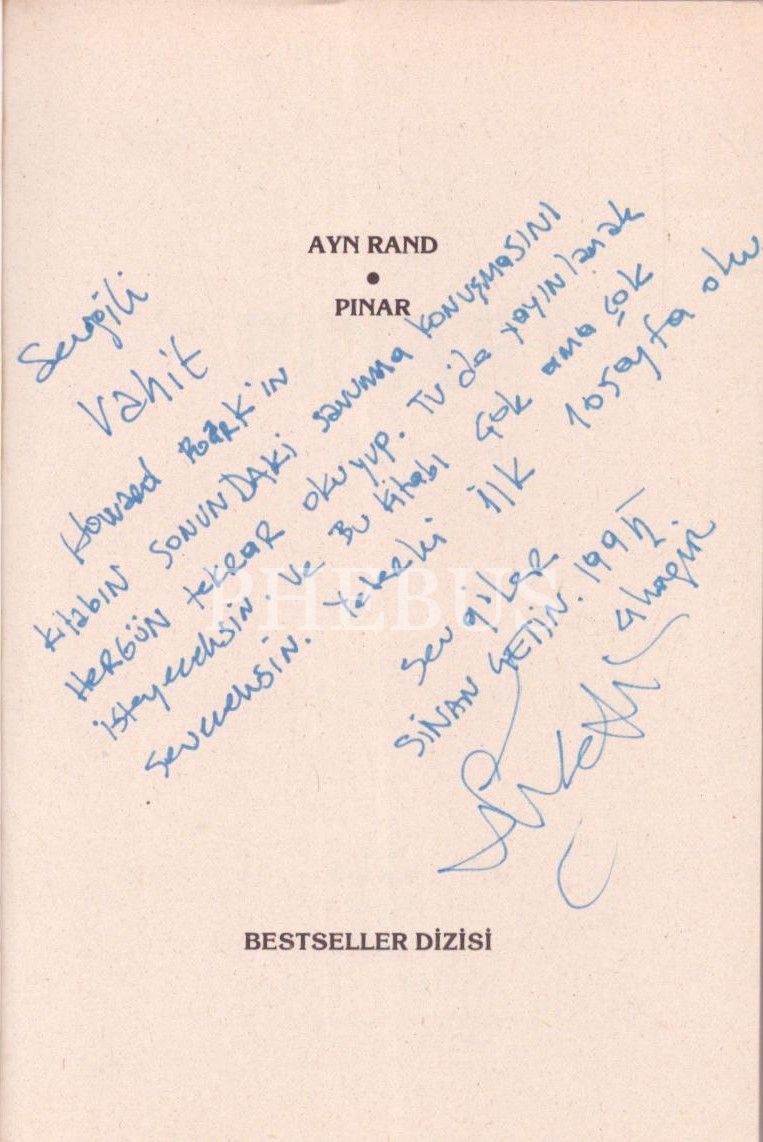 AYN RAND
•
PINAR
Sevgili
Vahit
Howard Roark'ın
kitabın SONUNDAKİ savunma konuşmasını
HERGÜN tekrar okuyup. TV'da yayınlamak
isteyeceksin. Ve Bu kitabı Çok ama çok
seveceksin. Yeterki İlk 105ayfa oku
sevgiler
SİNAN ÇETİN. 199
PHEBUS
BESTSELLER DİZİSİ